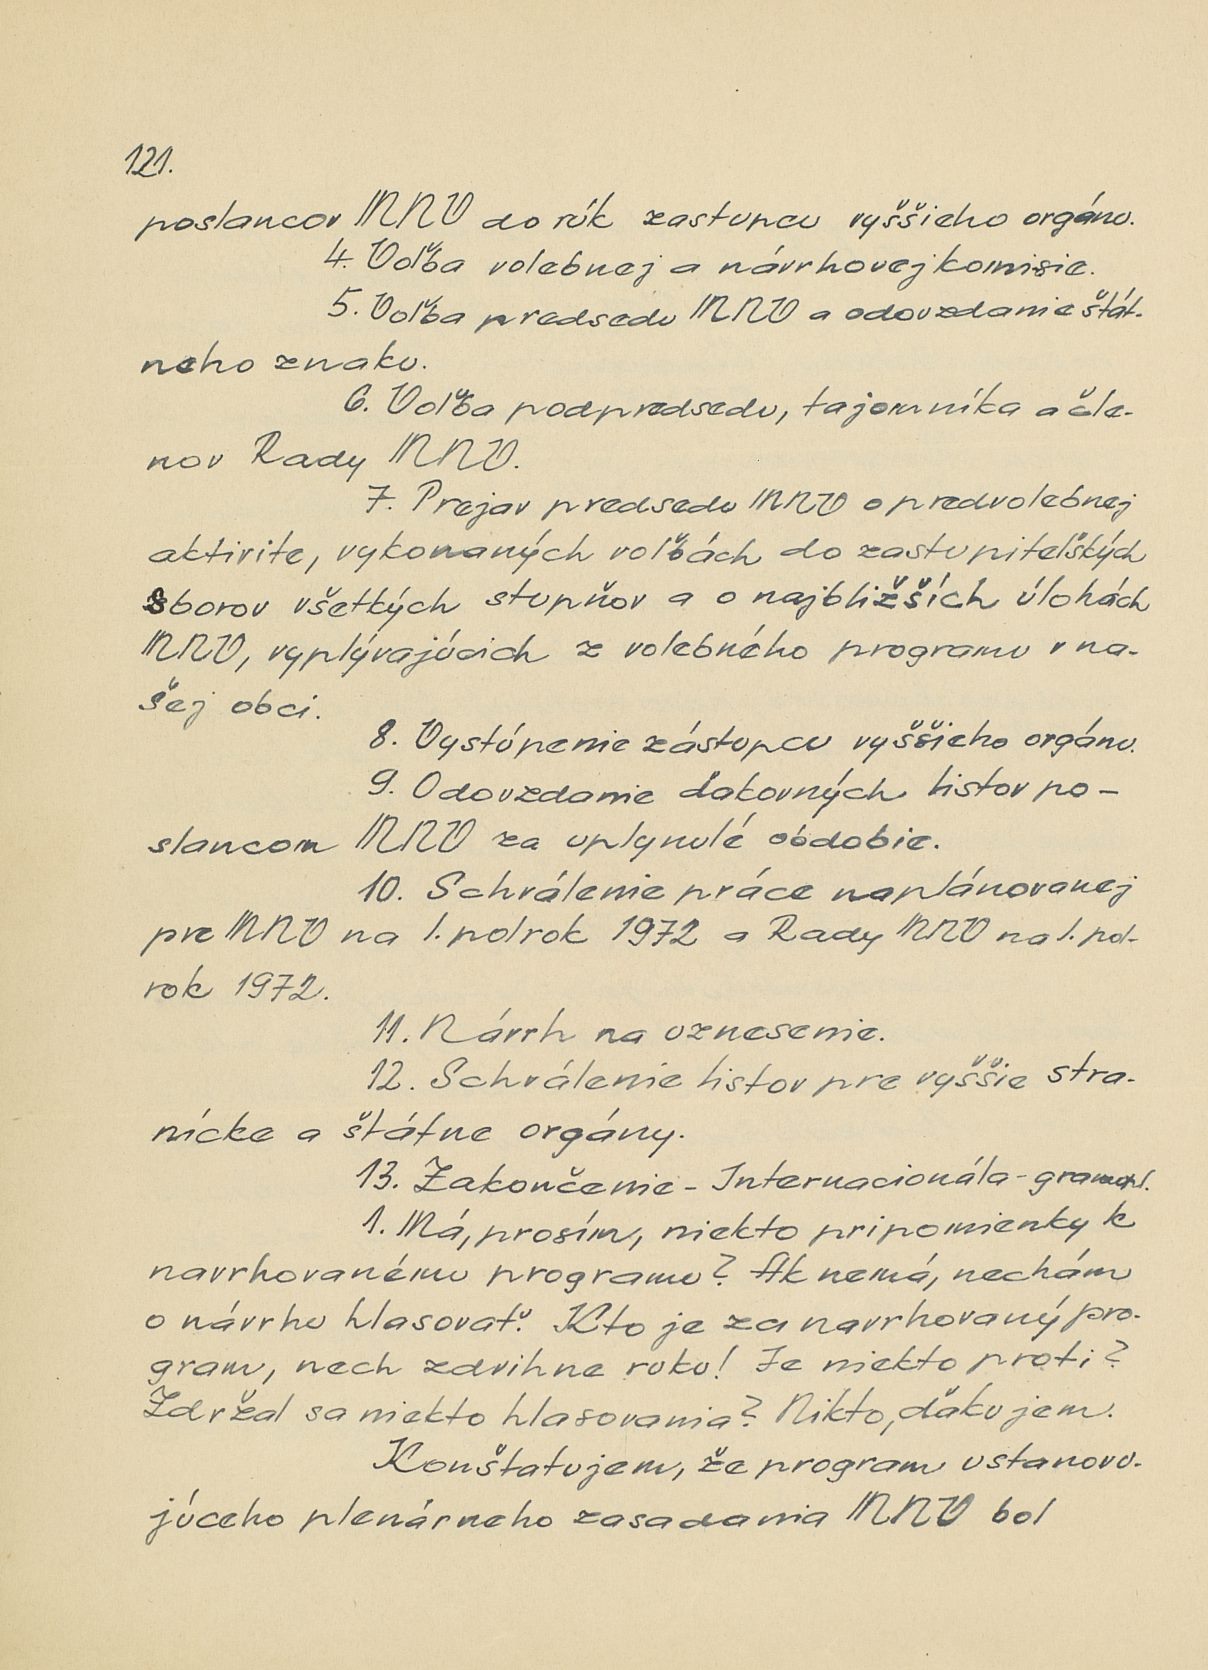 121.
poslancov MNV do rúk zastupcu vyššieho orgánu.
4. Voľba volebnej a návrhovej komisie.
5. Voľba predsedu MNV a odovzdanie štát-
neho znaku.
6. Voľba podpredsedu, tajomníka a čle-
nov Rady MNV.
7. Prejav predsedu MNV o predvolebnej
aktivite, vykonaných voľbách do zastupiteľských
sborov všetkých stupňov a o najbližších úlohách
MNV, vyplývajúcich z volebného programu v na-
šej obci.
8. Vystúpenie zástupcu vyššieho orgánu.
9. Odovzdanie ďakovných listov po-
slancom MNV za uplynulé obdobie.
10. Schválenie práce naplánovanej
pre MNV na 1. polrok 1972 a Rady MNV na 1. pol-
rok 1972.
11. Návrh na uznesenie.
12. Schválenie listov pre vyššie stra-
nícke a štátne orgány.
13. Zakončenie - Internacionála - gramopl.
1. Má, prosím, niekto pripomienky k
navrhovanému programu? Ak nemá, nechám
o návrhu hlasovať. Kto je za navrhovaný pro-
gram, nech zdvihne ruku! Je niekto proti?
Zdržal sa niekto hlasovania? Nikto, ďakujem.
Konštatujem, že program ustanovu-
júceho plenárneho zasadania MNV bol